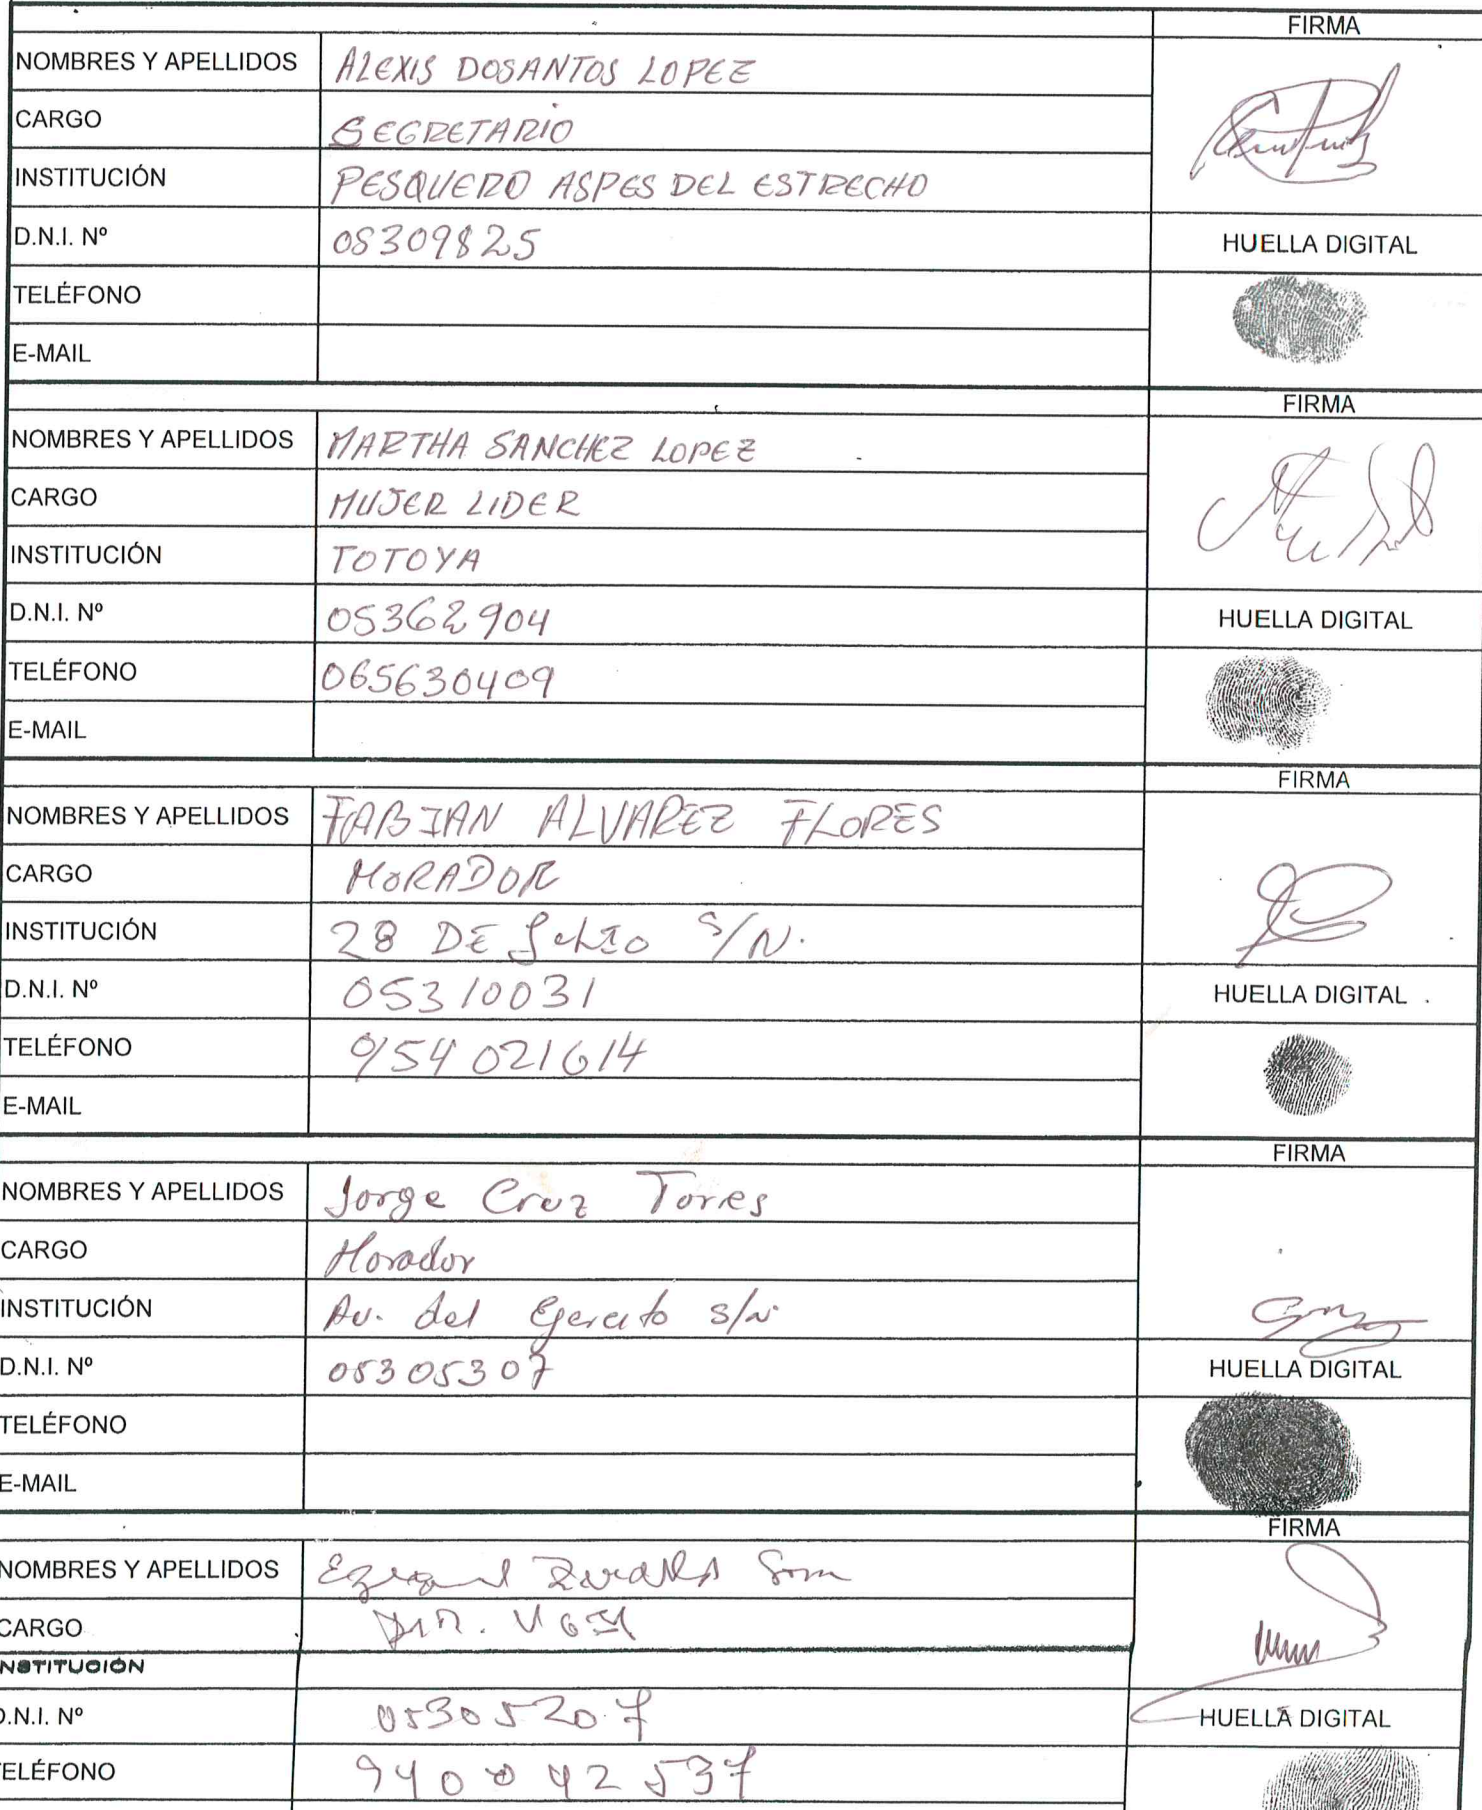 FIRMA
NOMBRES Y APELLIDOS ALEXIS DOSANTOS LOPEZ
CARGO SEGRETARIO
INSTITUCIÓN PESQUERO ASPES DEL ESTRECHO
D.N.I. Nº 05309825
HUELLA DIGITAL
TELÉFONO
E-MAIL
FIRMA
NOMBRES Y APELLIDOS MARTHA SANCHEZ LOPEZ
CARGO MUJER LIDER
INSTITUCIÓN TOTOYA
D.N.I. Nº 05362904
HUELLA DIGITAL
TELÉFONO 065630409
E-MAIL
FIRMA
NOMBRES Y APELLIDOS FABIAN ALVAREZ FLORES
CARGO MORADOR
INSTITUCIÓN 28 DE JULIO S/N.
D.N.I. Nº 05310031
HUELLA DIGITAL
TELÉFONO 954021614
E-MAIL
FIRMA
NOMBRES Y APELLIDOS Jorge Cruz Torres
CARGO Morador
INSTITUCIÓN Av. del Ejercito s/n
D.N.I. Nº 05305307
HUELLA DIGITAL
TELÉFONO
E-MAIL
FIRMA
NOMBRES Y APELLIDOS
CARGO DIR. UGEL
NSTITUCIÓN
D.N.I. Nº 05305207
HUELLA DIGITAL
TELÉFONO 940042537